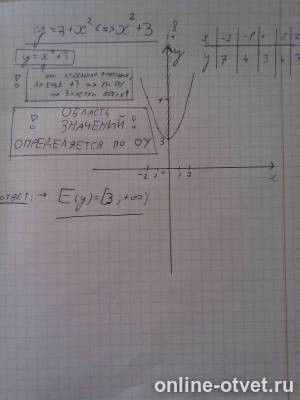 y = 3 + x² <=> x² + 3
x | -2 | -1 | 0 | 1 | 2
y | 7 | 4 | 3 | 4 | 7
y = x² + 3
ОБЛАСТЬ
ЗНАЧЕНИЙ
ОПРЕДЕЛЯЕТСЯ ПО OY
8
y
4
3
-2 -1 0 1 2
x
ОТВЕТ: → E(y) = [3; +∞)
online-otvet.ru